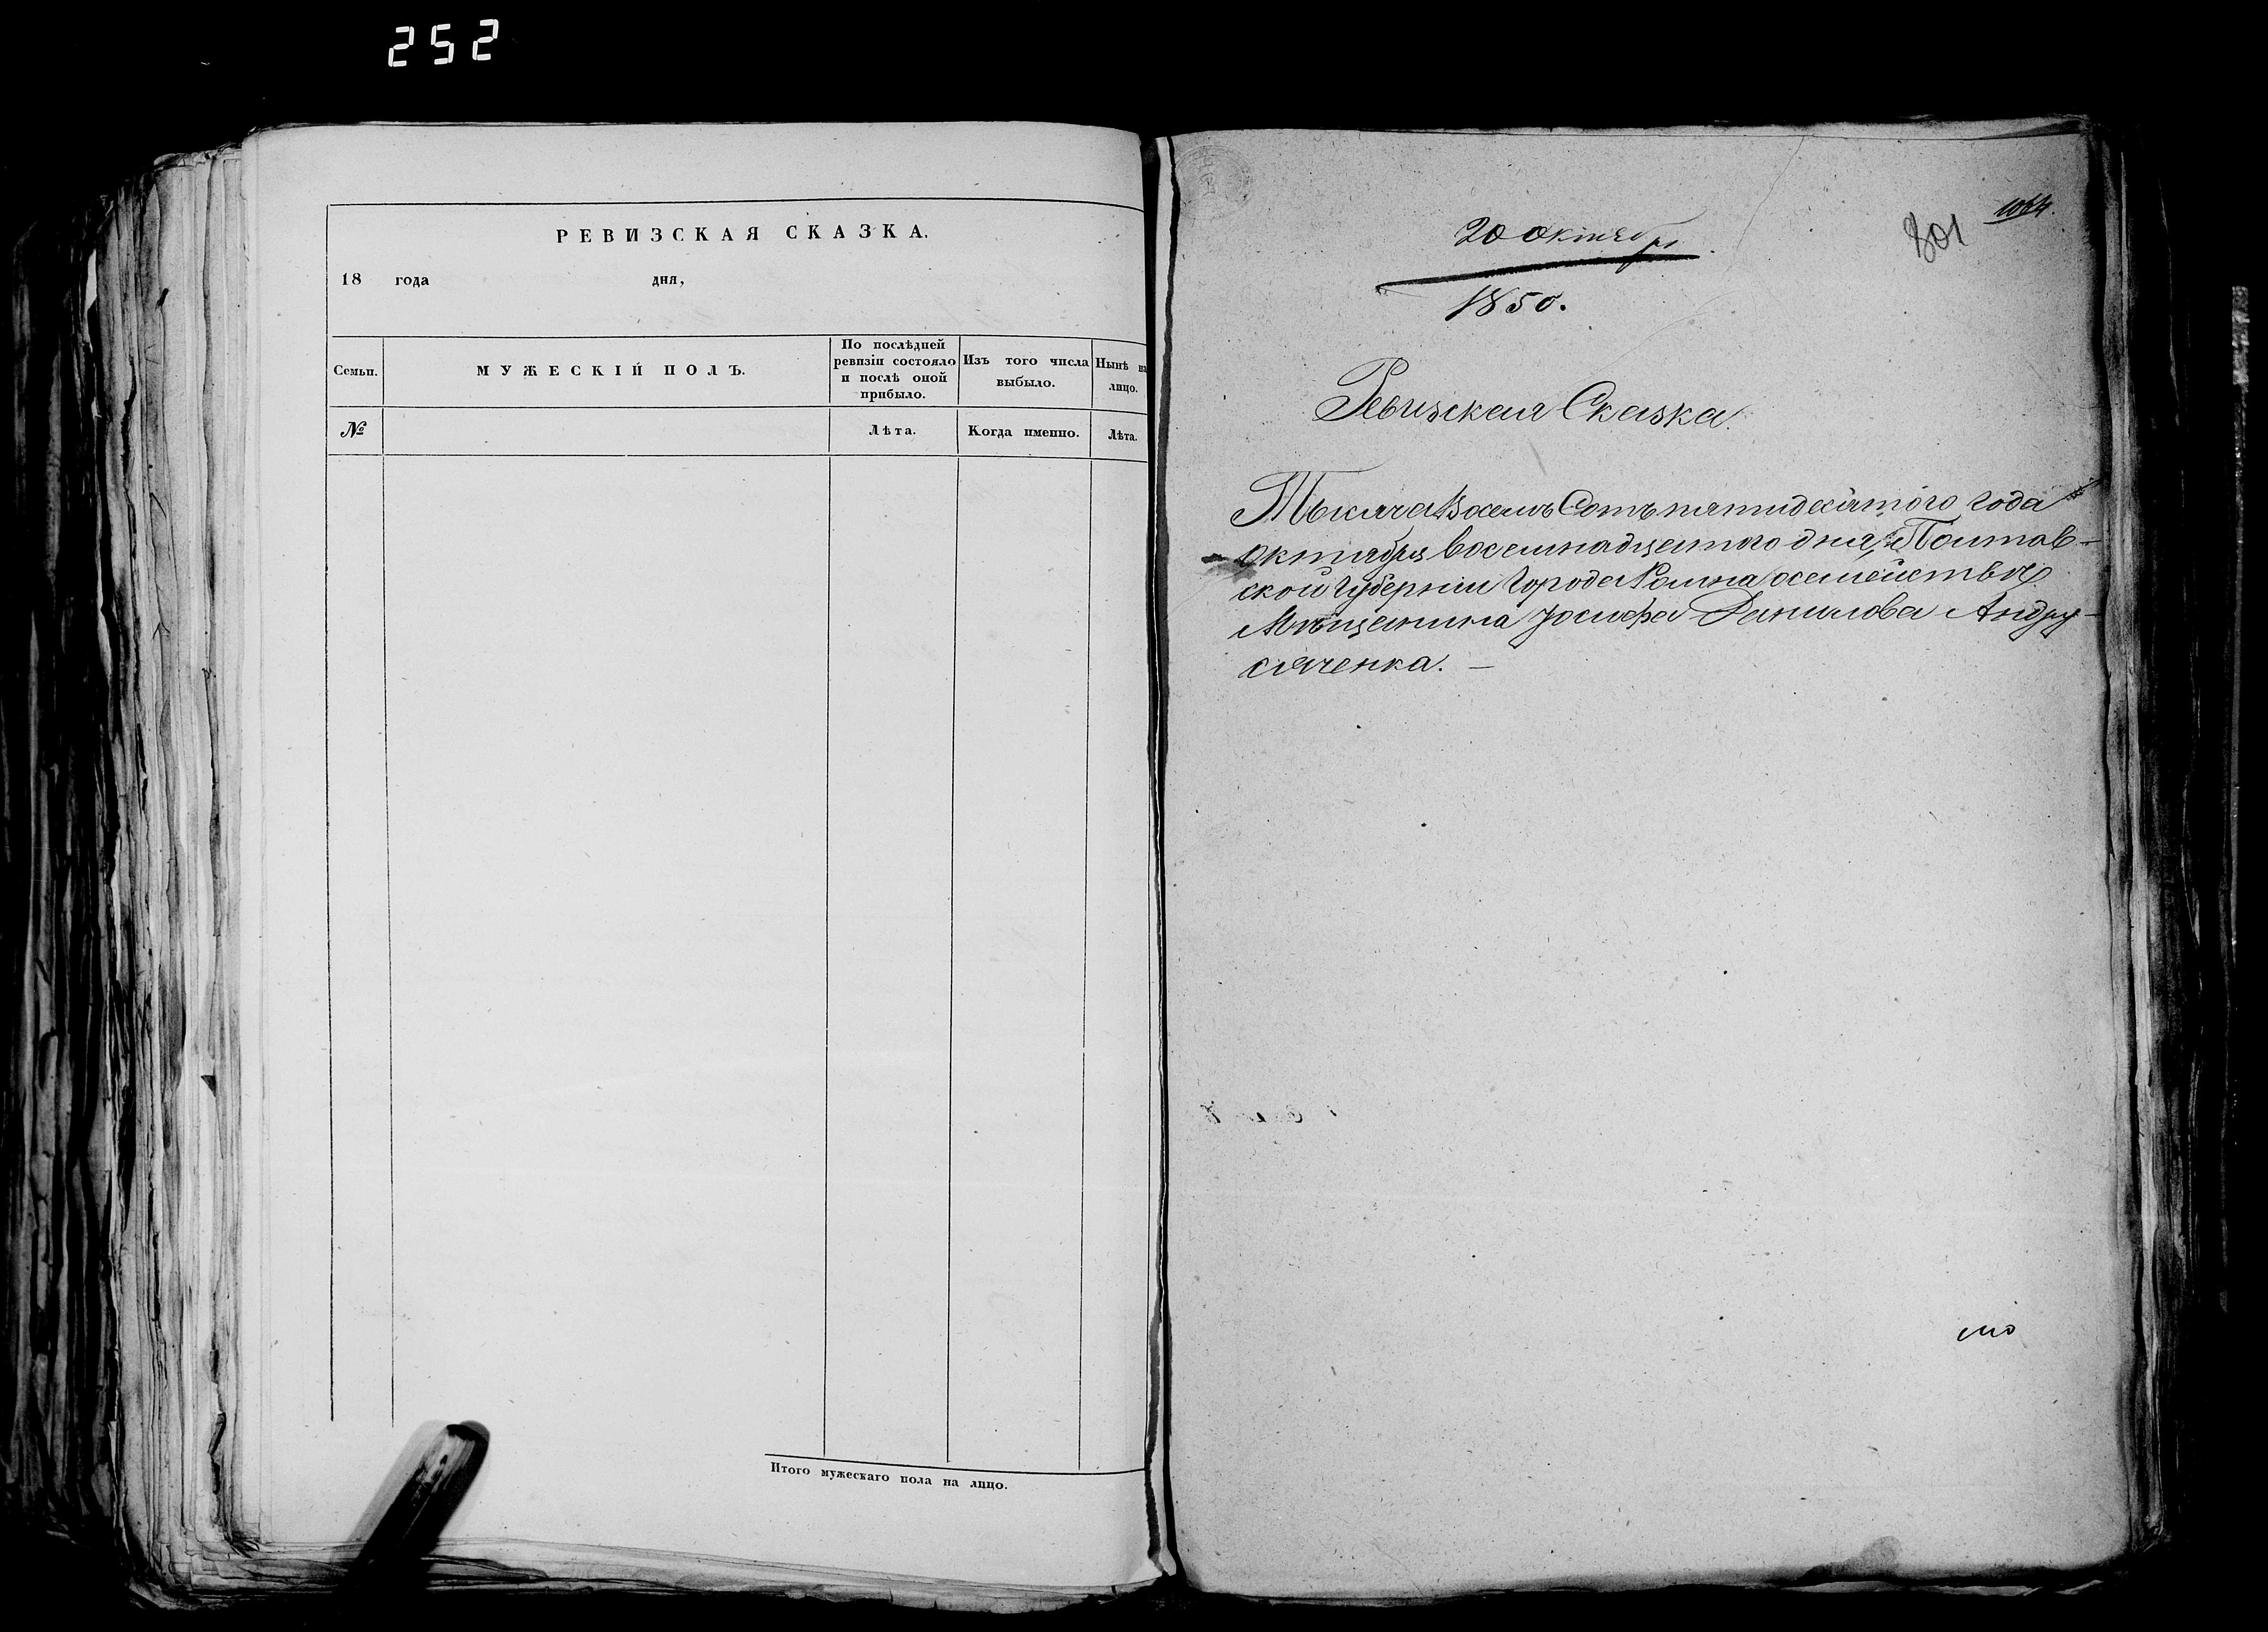 252
РЕВИЗСКАЯ СКАЗКА.
18 года дня,
Семьи.
МУЖЕСКІЙ ПОЛЪ.
По послѣдней
ревизіи состояло
и послѣ оной
прибыло.
Изъ того числа
выбыло.
Нынѣ на
лицо.
№
Лѣта.
Когда именно.
Лѣта.
Итого мужескаго пола на лицо.
801
20 октября
1850.
Ревизская Сказка.
Тысяча Восемь Сотъ пятидесятого года
октября восемнадцатого дня, Полтав-
ской Губерніи Города Ромна о семействѣ
Мѣщанина Іосифа Данилова Андру-
сяченка. —